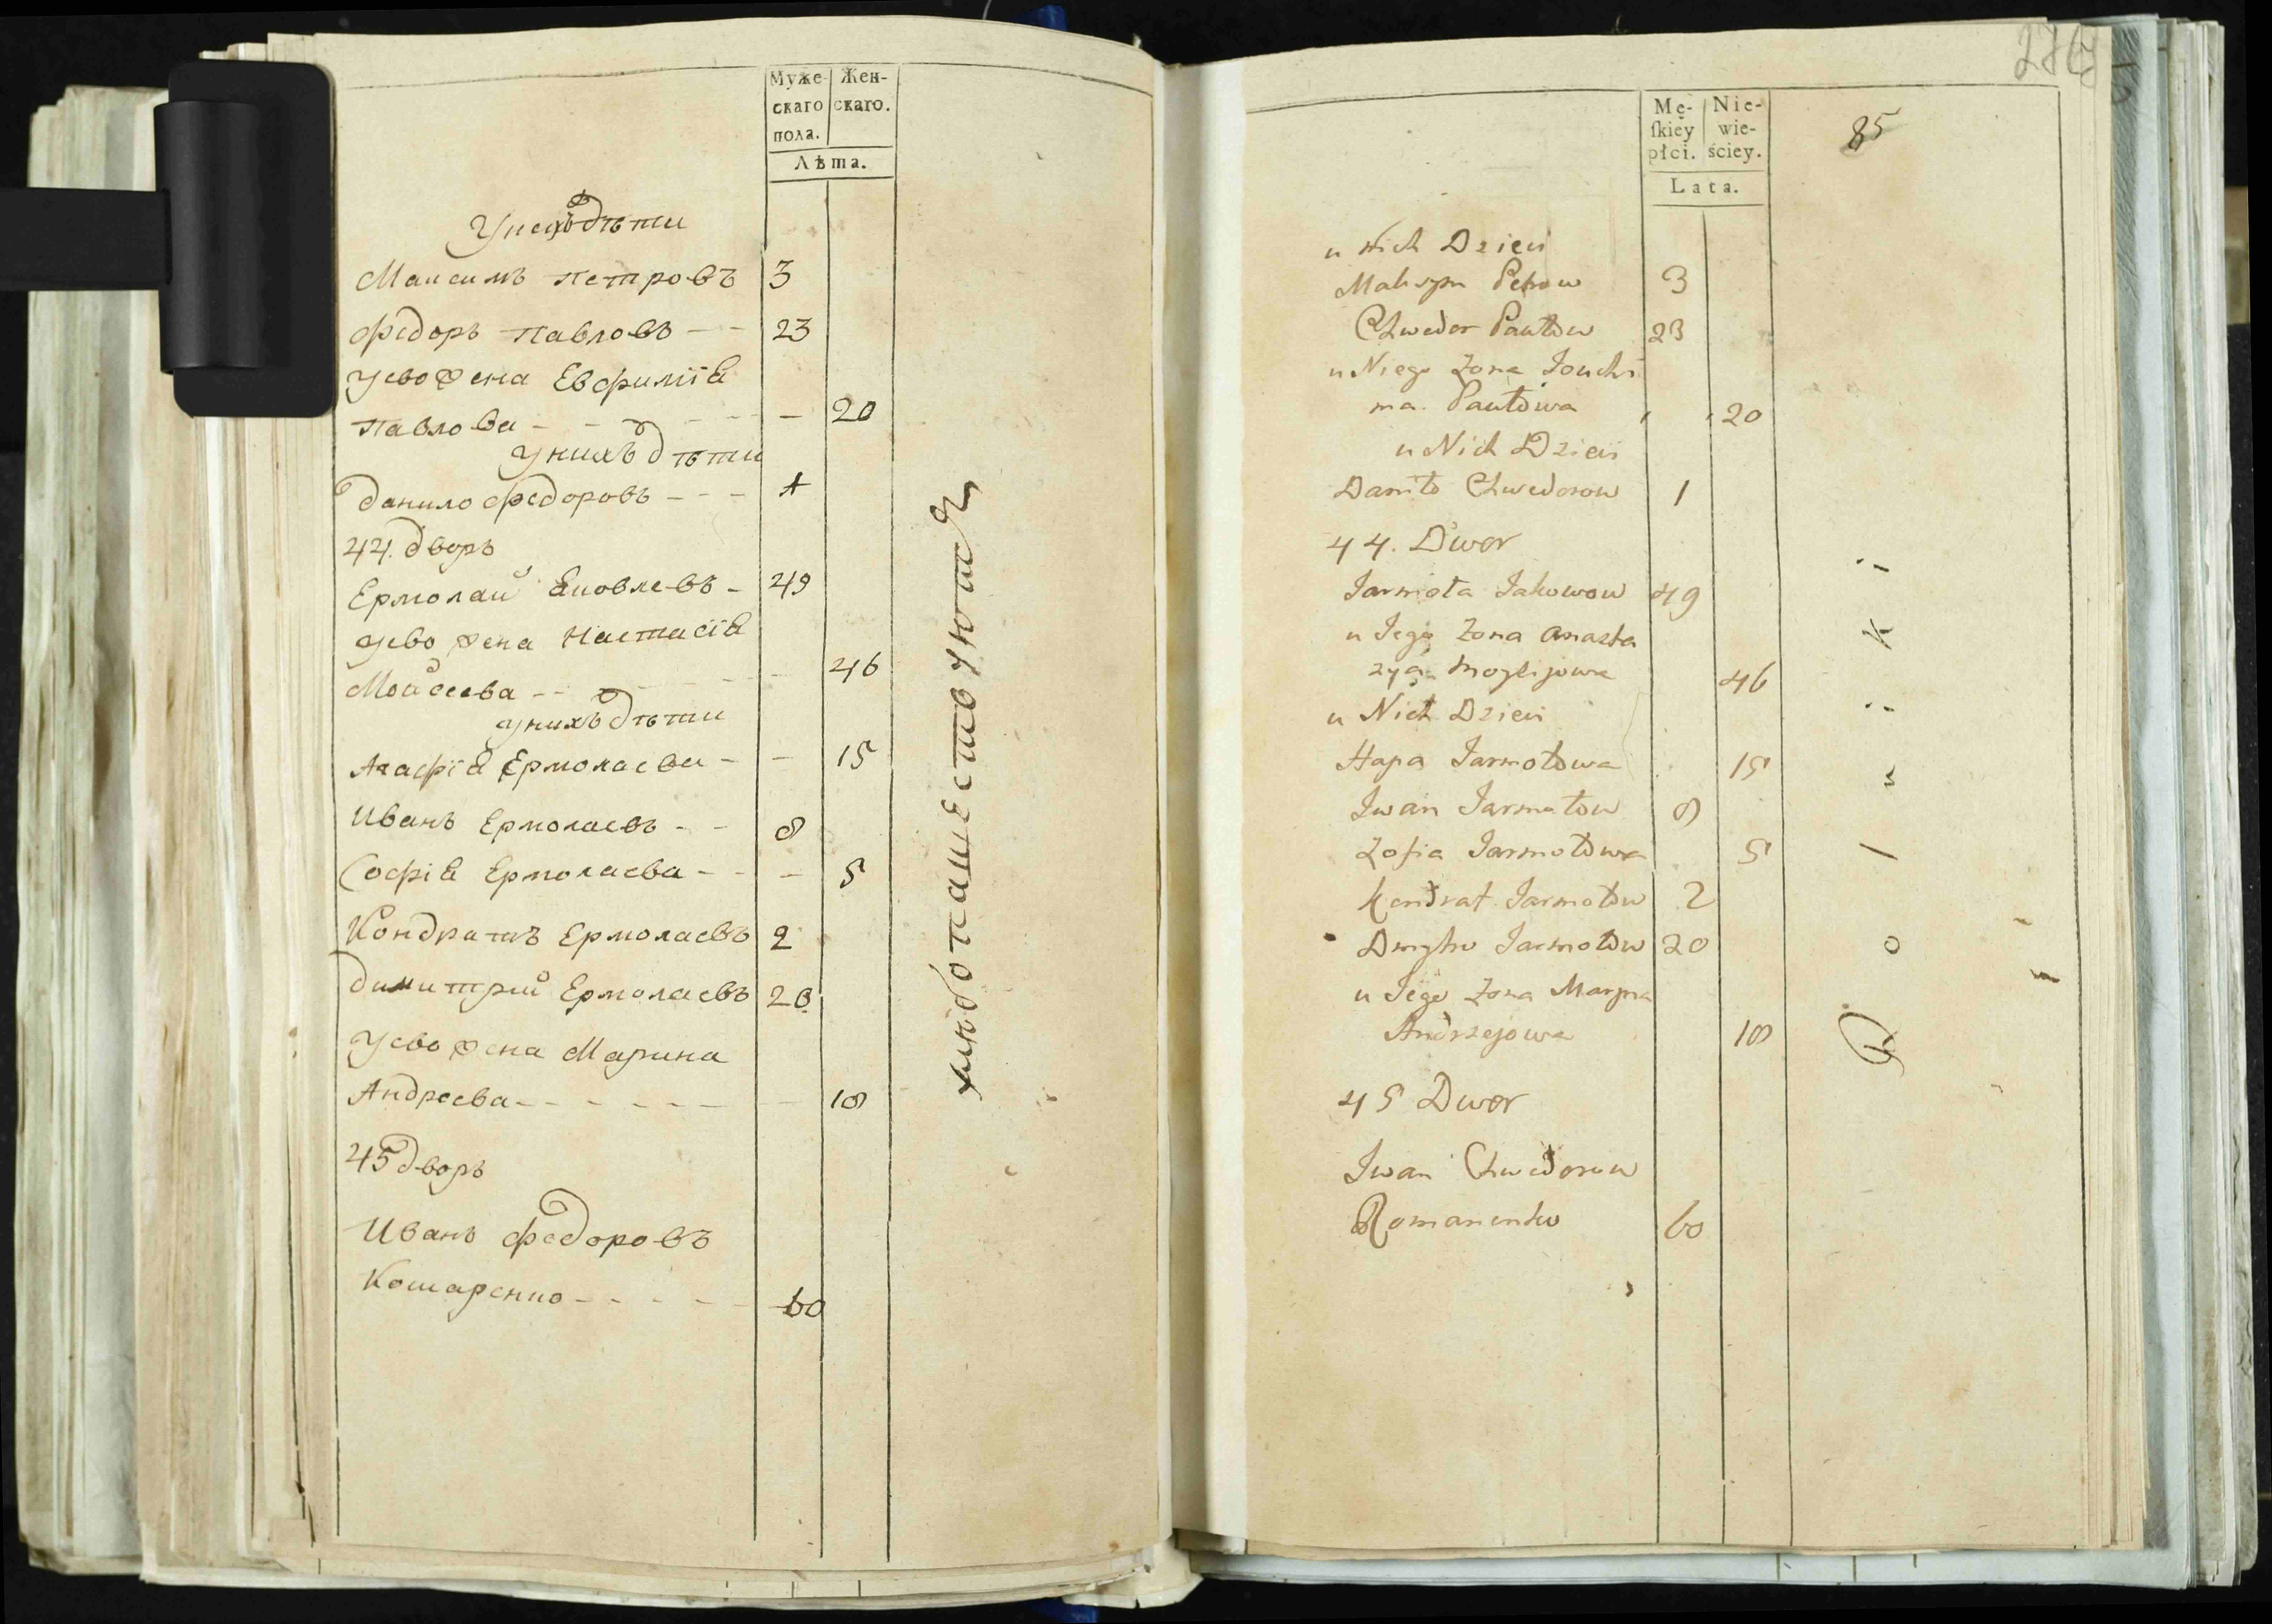 Муже-
скаго
пола.
Жен-
скаго.
Лѣта.
У нихъ дѣти
Максимъ Петровъ 3
Федоръ Павловъ - - 23
У ево жена Евфимїя
Павлова - - - - - 20
У нихъ дѣти
Данило Федоровъ - - - 1
44. дворъ
Ермолай Яковлевъ - 49
У ево жена Настасїя
Мойсеева - - - - 46
У нихъ дѣти
Агафїя Ермолаева - - 15
Иванъ Ермолаевъ - - 8
Софїя Ермолаева - - - 5
Кондратъ Ермолаевъ 2
Димитрий Ермолаевъ 20
У ево жена Марина
Андреева - - - - - - 18
45 дворъ
Иванъ Федоровъ
Кошаренко - - - - - 60
хлѣбопашествуютъ
276
85
Mę-
ſkiey
płci.
Nie-
wie-
ściey.
Lata.
u Nich Dzieci
Maksym Petrow 3
Chwedor Pawłow 23
u Niego Żona Jouchi
ma Pawłowa 20
u Nich Dzieci
Daniło Chwedorow 1
44. Dwor
Jarmoła Jakowow 49
u Jego Żona Anasta
zya 46
u Nich Dzieci
Hapa Jarmołowa 15
Iwan Jarmołow 8
Zofia Jarmołowa 5
Kondrat Jarmołow 2
Dmytro Jarmołow 20
u Jego Żona Maryna
Andrzejowa 18
45 Dwor
Iwan Chwedorow
Romanenko 60
Rolniki